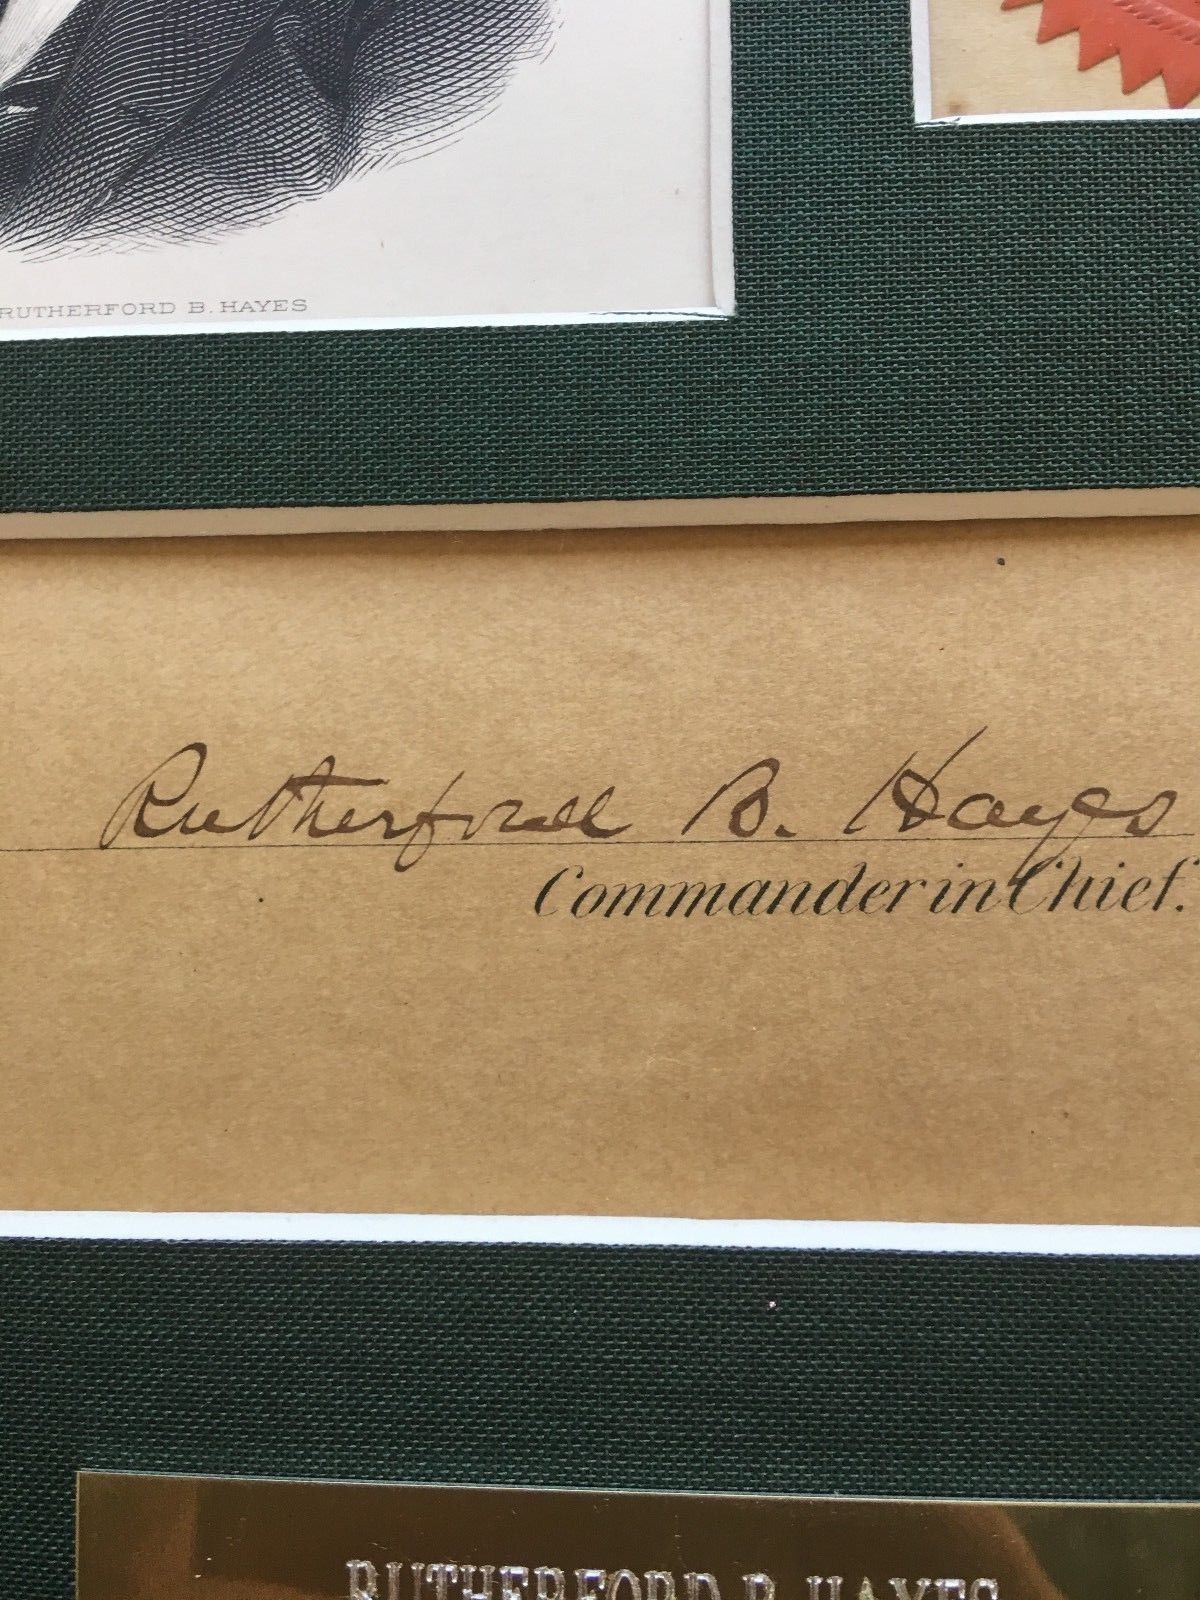 RUTHERFORD B. HAYES
Rutherford B. Hayes
Commander in Chief.
RUTHERFORD B. HAYES